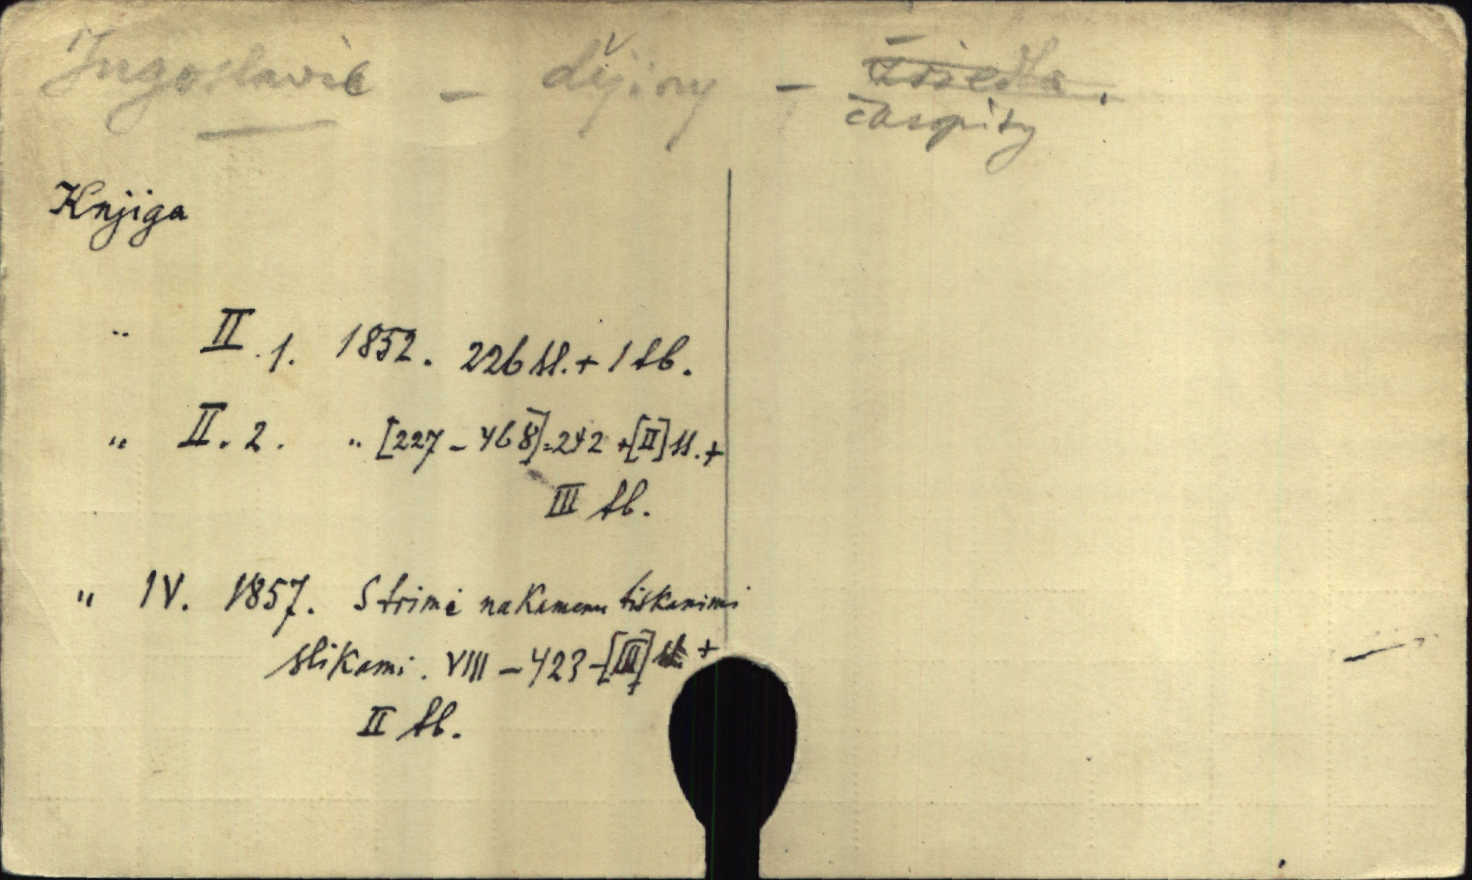 Jugoslavie – dějiny –
časopisy
Knjiga
„ II. 1. 1852. 226 st. + 1 tb.
„ II. 2. „ [227 – 468] = 242 + [II] st. +
III tb.
„ IV. 1857. S trimi na kamenu tiskanimi
slikami. VIII – 423 – [III] st. +
II tb.